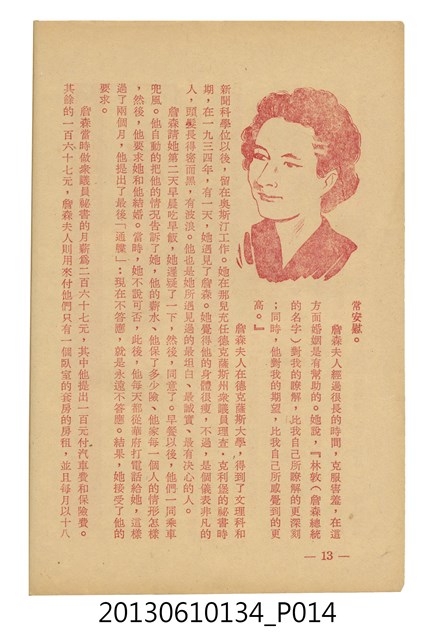 常安慰。
詹森夫人經過很長的時間，克服害羞，在這
方面婚姻是有幫助的。她說，『林敦（詹森總統
的名字）對我的瞭解，比我自己所瞭解的更深刻
；同時，他對我的期望，比我自己所感覺到的更
高。』
詹森夫人在德克薩斯大學，得到了文理科和
新聞科學位以後，留在奧斯汀工作。她在那兒充任德克薩斯州衆議員理查·克利堡的秘書時
期，在一九三四年，有一天，她遇見了詹森。她覺得他的身體很瘦，不過，是個儀表非凡的
人，頭髮長得密而黑，有波浪。他也是她所遇見過的最坦白、最誠實、最有決心的人。
詹森請她第二天早晨吃早飯，她遲疑了一下，然後，同意了。早餐以後，他們一同乘車
兜風。他自動的把他的情况告訴了她，他的薪水、他保了多少險、他家每一個人的情形怎樣
，然後，他要求她和他結婚。當時，她不說可否，此後，他每天都從華府打電話給她，這樣
過了兩個月，他提出了最後「通牒」：現在不答應，就是永遠不答應。結果，她接受了他的
要求。
詹森當時做衆議員祕書的月薪爲二百六十七元，其中他提出一百元付汽車費和保險費。
其餘的一百六十七元，詹森夫人則用來付他們只有一個臥室的套房的房租，並且每月以十八
— 13 —
20130610134_P014